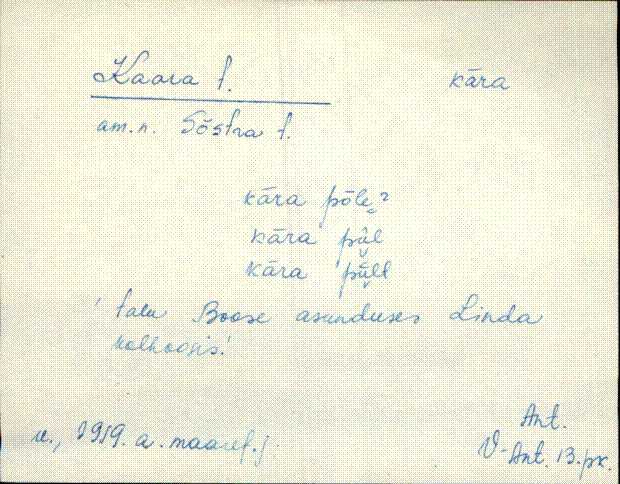 Kaara t. kāra
am.n. Sõstra t.
kāra põle
kāra pūl
kāra 'pūlt
'talu Boose asunduses Linda
kolhoosis.'
u., 1919. a. maaref.j
Ant.
V-Ant. 13.pk.